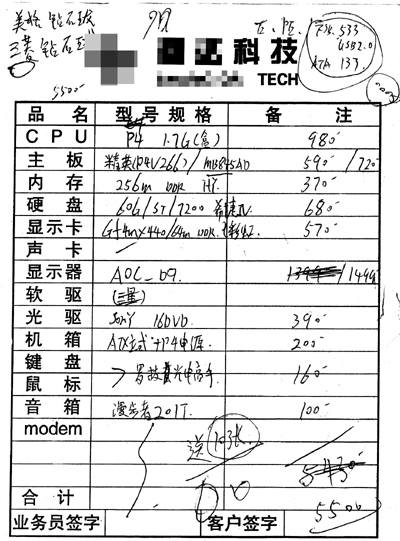 美格 钻石珑
三菱 钻石珑
5500
科技
TECH
FSB 533
USB2.0
ATA 133
品名 型号规格 备注
CPU P4 1.7G(盒) 980
主板 精英(P4V266)/ 845AD 590 /720
内存 256m DDR HY 370
硬盘 60G/ST/7200 希捷IV 680
显示卡 Gf4mx440/64m DDR 570
声卡
显示器 AOC-D9 /1499
软驱
光驱 SONY 16DVD 390
机箱 ATX立式+P4电源 200
键盘
鼠标 罗技 光电高手 160
音箱 漫步者201T 100
modem 送
合计 5500
业务员签字 客户签字